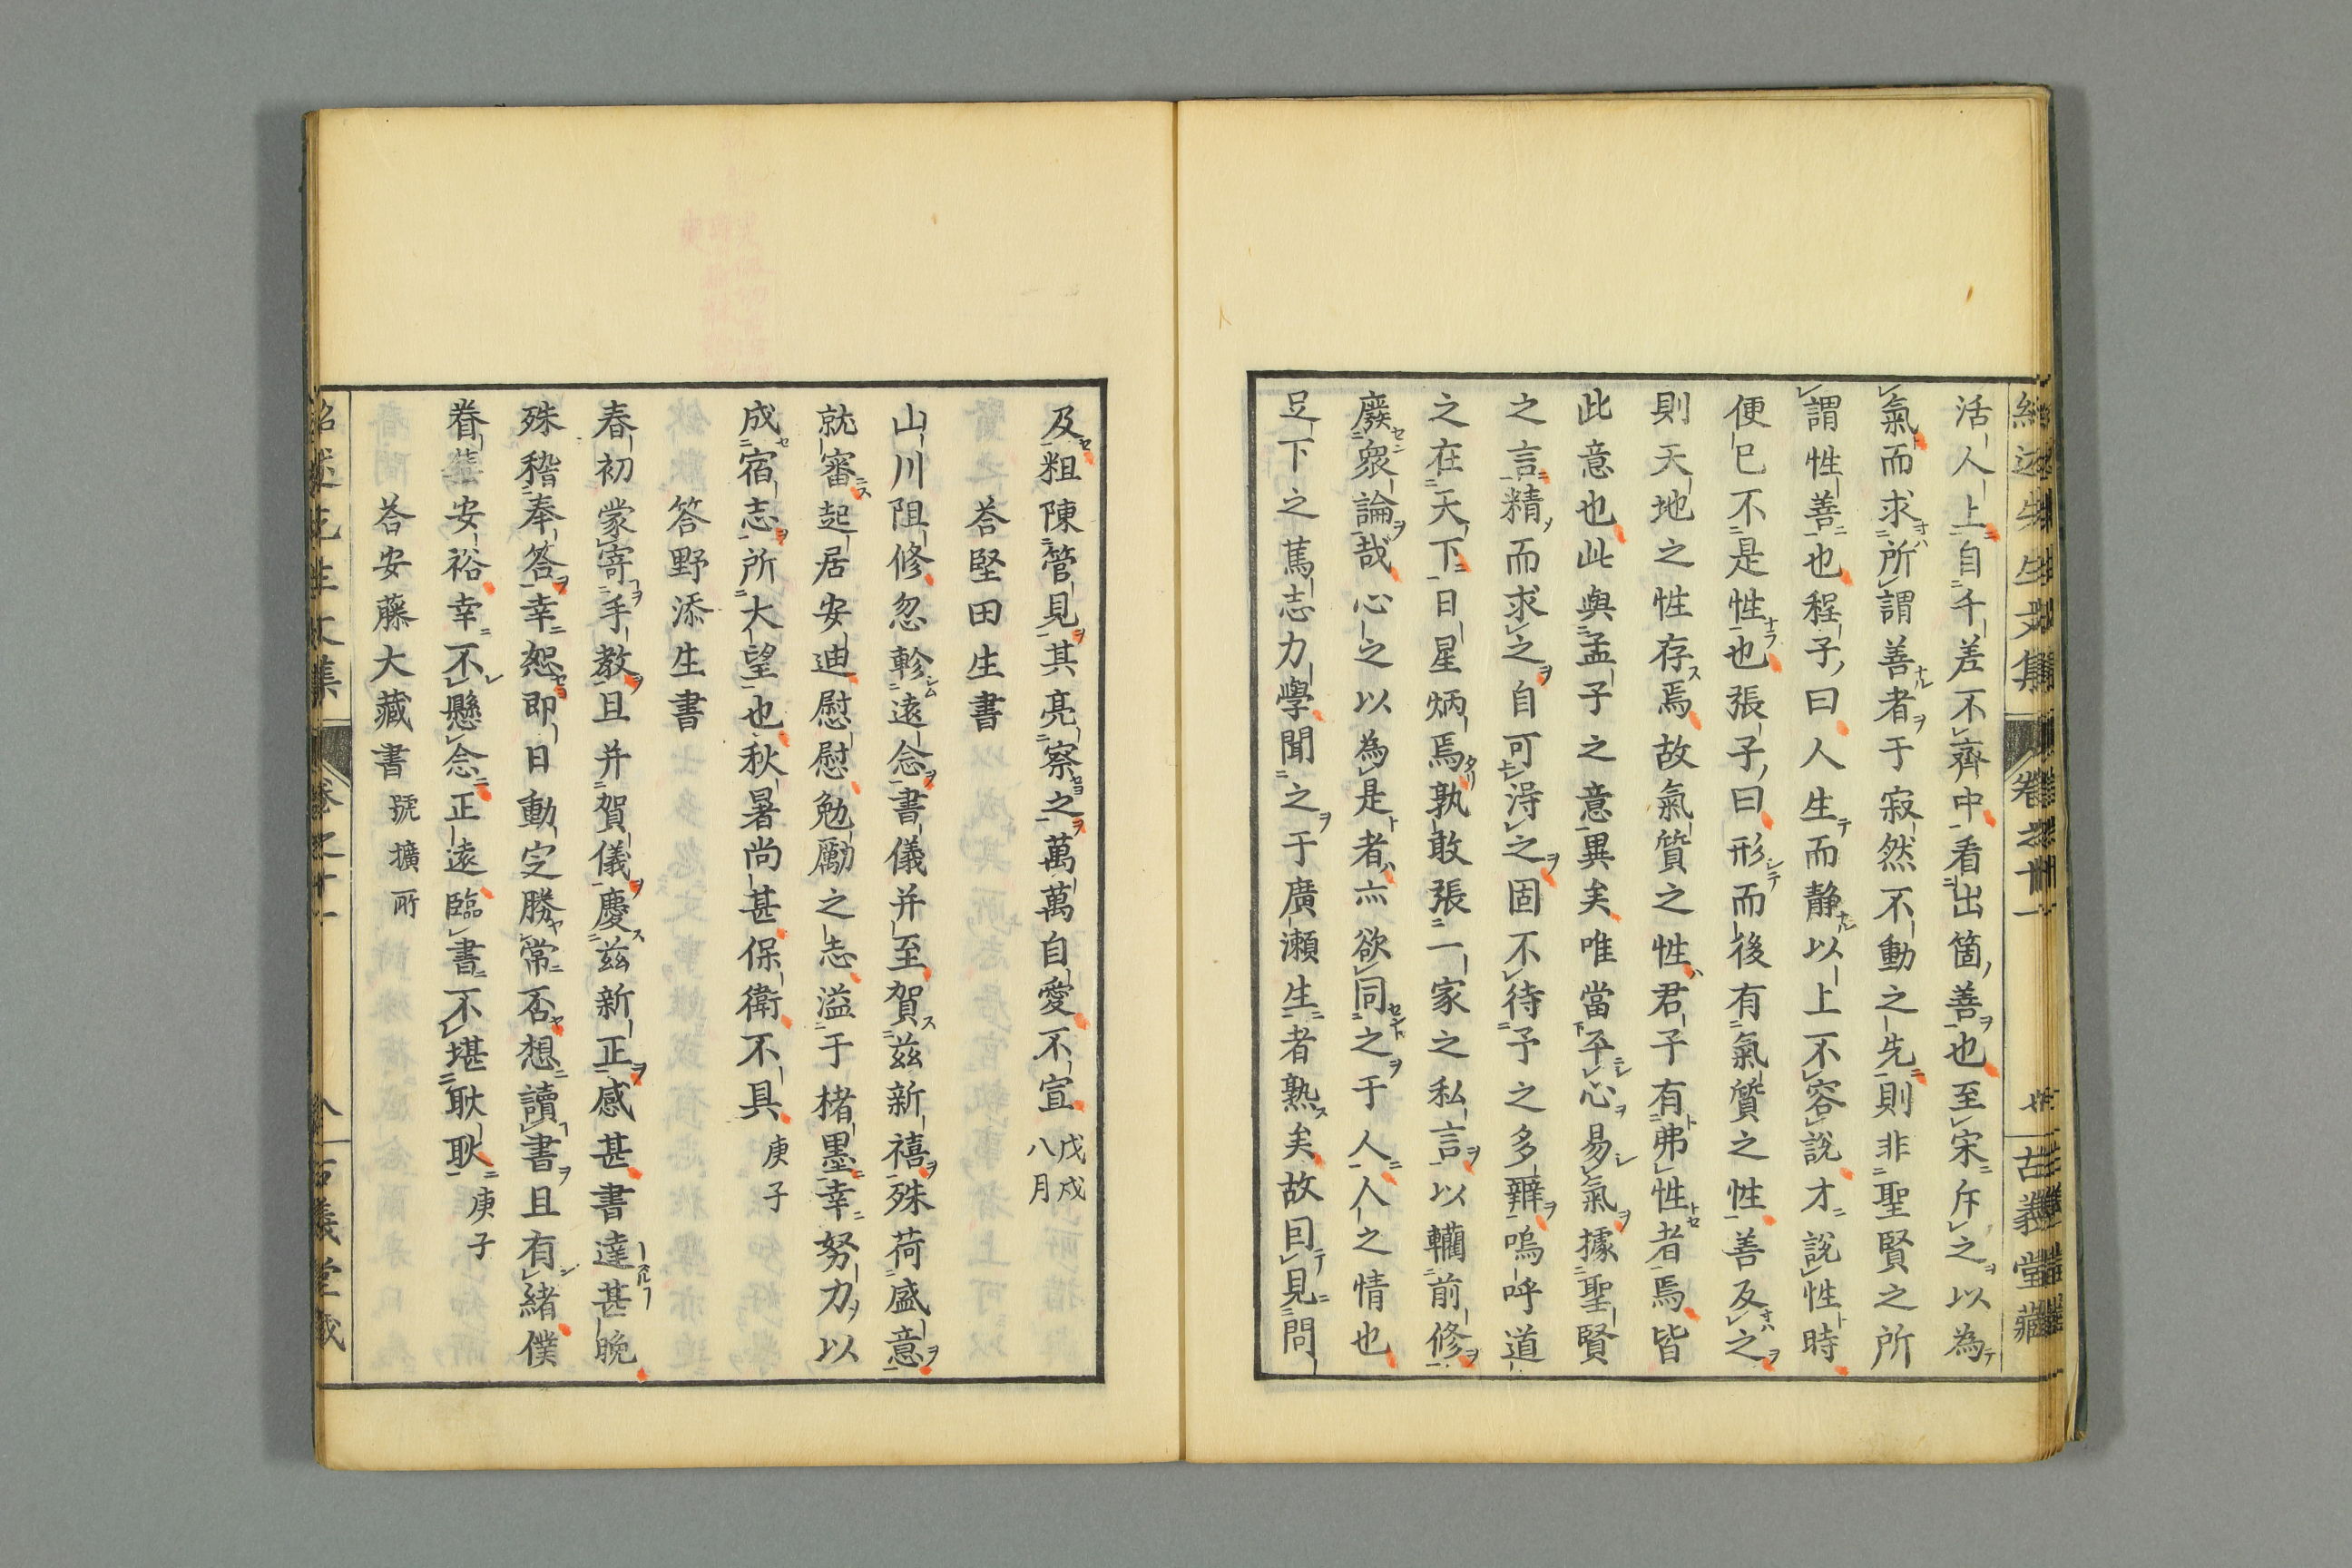 活人上自千差不齊中看出箇善也至宋斥之以為
氣而求所謂善者于寂然不動之先則非聖賢之所
謂性善也程子曰人生而静以上不容說才說性時
便已不是性也張子曰形而後有氣質之性善反之
則天地之性存焉故氣質之性君子有弗性者焉皆
此意也此與孟子之意異矣唯當平心易氣據聖賢
之言精而求之自可淂之固不待予之多辯嗚呼道
之在天下日星炳焉孰敢張一家之私言以轥前修
廢衆論哉心之以為是者亦欲同之于人人之情也
足下之篤志力學聞之于廣瀬生者熟矣故因見問
及粗陳管見其亮察之萬萬自愛不宣 戊戌八月
荅堅田生書
山川阻修忽軫遠念書儀并至賀茲新禧殊荷盛意
就審起居安迪慰慰勉勵之志溢于楮墨幸努力以
成宿志所大望也秋暑尚甚保衛不具 庚子
答野添生書
春初蒙寄手教且并賀儀慶茲新正感甚書達甚晩
殊稽奉答幸恕即日動定勝常否想讀書且有緒僕
眷集安裕幸不懸念正遠臨書不堪耿耿 庚子
荅安藤大藏書 號擴所
紹述先生文集 卷之十一 古義堂藏